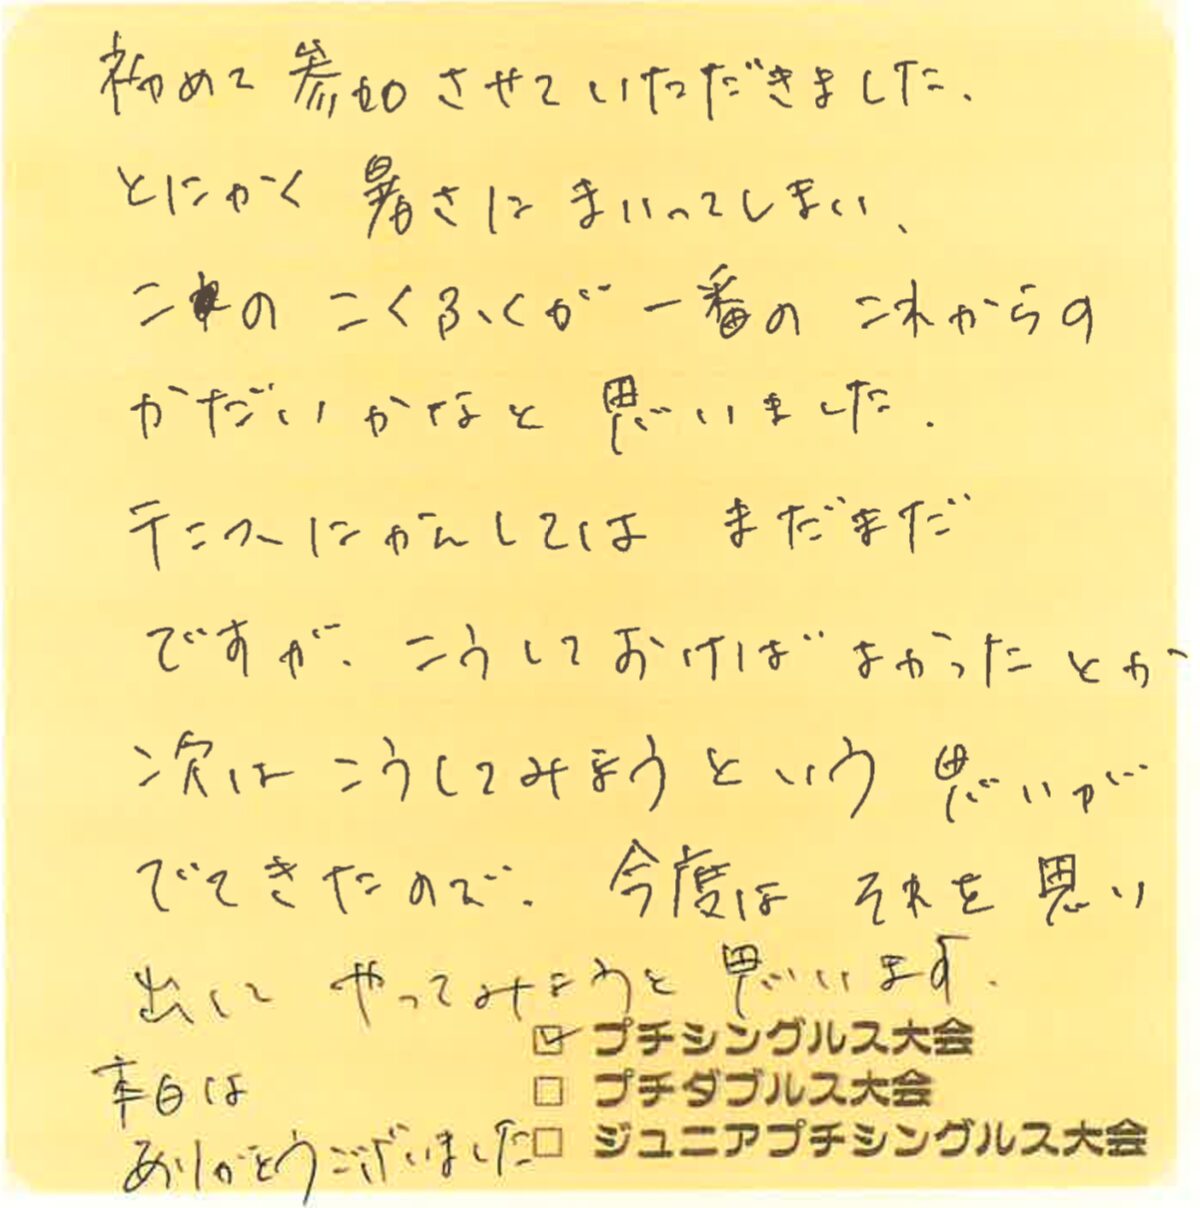 初めて 参加させていただきました.
とにかく 暑さに まいってしまい、
この こくふくが 一番の これからの
かだいかなと 思いました.
テニスにかんしては まだまだ
ですが、こうしておけば よかったとか
次は こうしてみようという 思いが
でてきたので、今度は それを 思い
出して やってみようと 思います.
本日は
ありがとうございました
☑ プチシングルス大会
□ プチダブルス大会
□ ジュニアプチシングルス大会